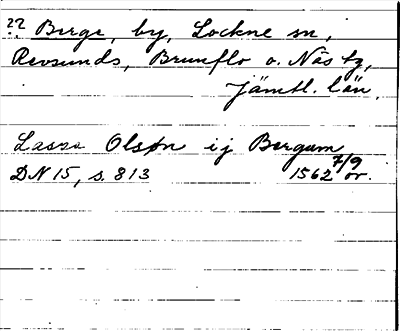 22 Berge, by, Lockne sn,
Revsunds, Brunflo o. Näs tg,
Jämtl. län.
Lasse Olsøn ij Bergum
7/9
DN 15, s. 813 1562 or.